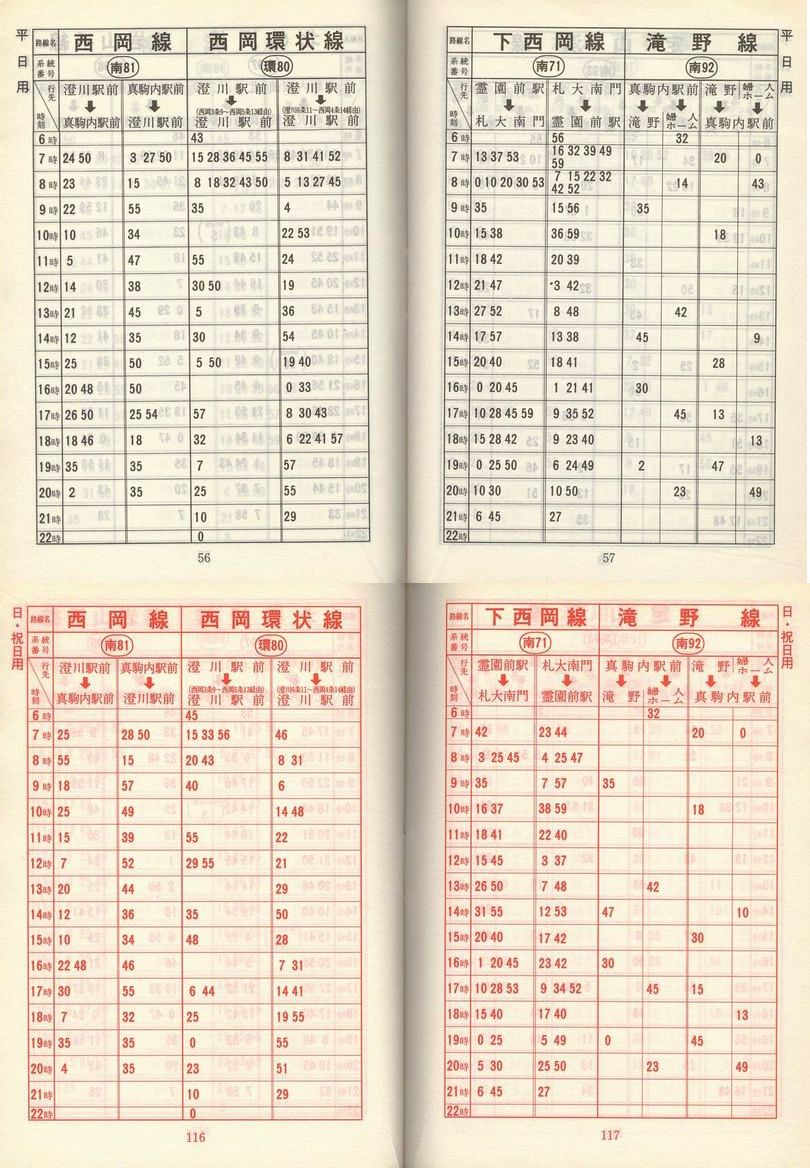 平日用
路線名 西岡線 西岡環状線
系統番号 南81 環80
行先 時刻 澄川駅前 真駒内駅前 澄川駅前 澄川駅前
(西岡3条9〜西岡5条13経由) (澄川6条11〜西岡4条14経由)
真駒内駅前 澄川駅前 澄川駅前 澄川駅前
6時 43
7時 24 50 3 27 50 15 28 36 45 55 8 31 41 52
8時 23 15 8 18 32 43 50 5 13 27 45
9時 22 55 35 4
10時 10 34 22 53
11時 5 47 55 24
12時 14 38 30 50 28
13時 21 45 5 36
14時 12 35 30 54
15時 25 50 5 50 19 40
16時 20 48 50 0 33
17時 26 50 25 54 57 8 30 43
18時 18 46 18 32 6 22 41 57
19時 35 35 7 57
20時 2 35 25 55
21時 10 29
22時 0
56
平日用
路線名 下西岡線 滝野線
系統番号 南71 南92
行先 時刻 霊園前駅 札大南門 真駒内駅前 滝野 婦人ホーム
札大南門 霊園前駅 滝野 婦人ホーム 真駒内駅前
6時 56 32
7時 13 37 53 16 32 39 49 59 20 0
8時 0 10 20 30 53 7 15 22 32 42 52 14 43
9時 35 15 56 35
10時 15 38 36 59 18
11時 18 42 20 39
12時 21 47 3 42
13時 27 52 8 48 42
14時 17 57 13 38 45 9
15時 20 40 18 41 28
16時 0 20 45 1 21 41 30
17時 10 28 45 59 9 35 52 45 13
18時 15 28 42 9 23 40 13
19時 0 25 50 6 24 49 2 47
20時 10 30 10 50 23 49
21時 6 45 27
22時
57
日・祝日用
路線名 西岡線 西岡環状線
系統番号 南81 環80
行先 時刻 澄川駅前 真駒内駅前 澄川駅前 澄川駅前
(西岡3条9〜西岡5条13経由) (澄川6条11〜西岡4条14経由)
真駒内駅前 澄川駅前 澄川駅前 澄川駅前
6時 45
7時 25 28 50 15 33 56 46
8時 55 15 20 43 8 31
9時 18 57 40 6
10時 25 49 14 48
11時 15 39 55 22
12時 7 52 29 55 21
13時 20 44 29
14時 12 36 35 50
15時 10 34 48 28
16時 22 48 46 7 31
17時 30 55 6 44 14 41
18時 7 32 25 19 55
19時 35 35 0 55
20時 4 35 23 51
21時 10 29
22時 0
116
日・祝日用
路線名 下西岡線 滝野線
系統番号 南71 南92
行先 時刻 霊園前駅 札大南門 真駒内駅前 滝野 婦人ホーム
札大南門 霊園前駅 滝野 婦人ホーム 真駒内駅前
6時 32
7時 42 23 44 20 0
8時 3 25 45 4 25 47
9時 35 7 57 35
10時 16 37 38 59 18
11時 18 41 22 40
12時 15 45 3 37
13時 26 50 7 48 42
14時 31 55 12 53 47 10
15時 20 40 17 42 30
16時 1 20 45 23 42 30
17時 10 28 53 9 34 52 45 15
18時 15 40 17 40 13
19時 0 25 5 49 0 45
20時 5 30 25 50 23 49
21時 6 45 27
22時
117